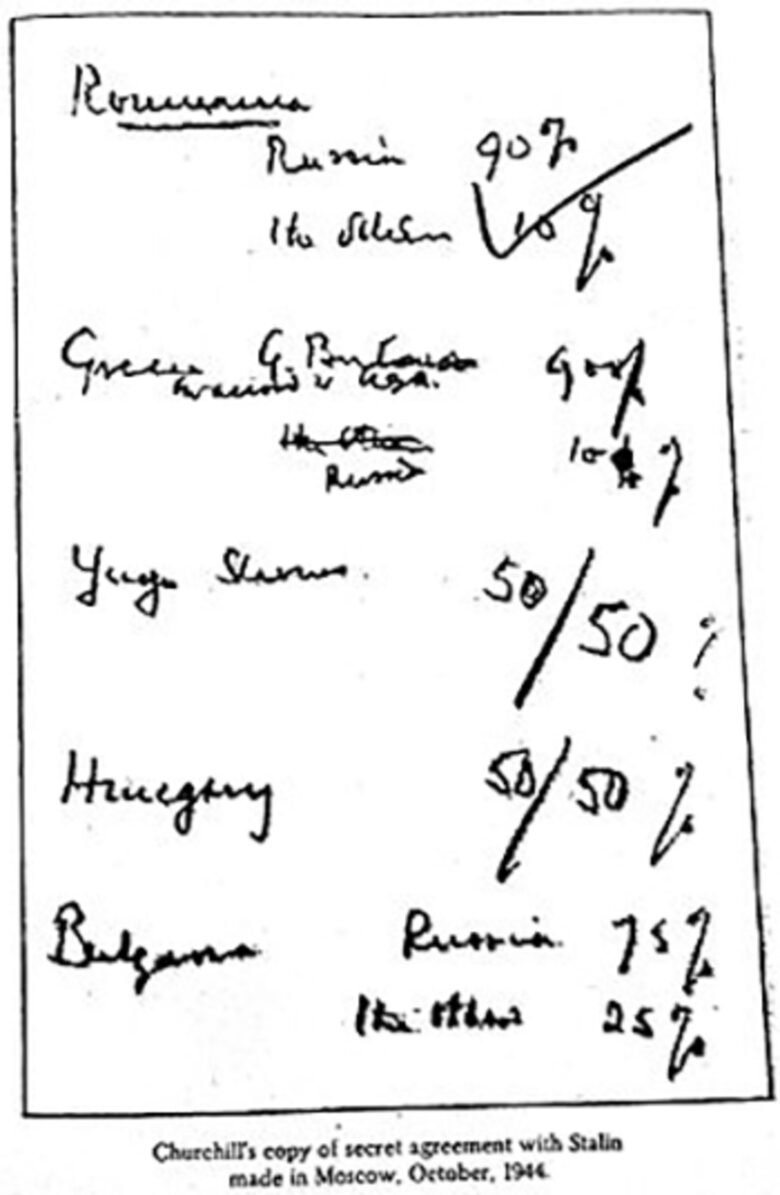 Roumania
Russia 90%
The others 10%
Greece G. Britain 90%
in accord w USA.
The others
Russia 10 %
Yugo Slavia. 50/50 %
Hungary 50/50 %
Bulgaria Russia 75%
The others 25%
Churchill's copy of secret agreement with Stalin
made in Moscow, October, 1944.